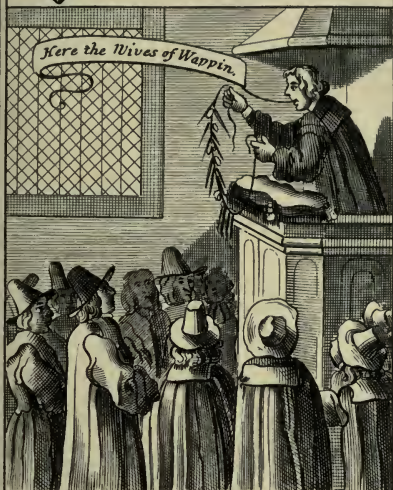 Here the Wives of Wappin.